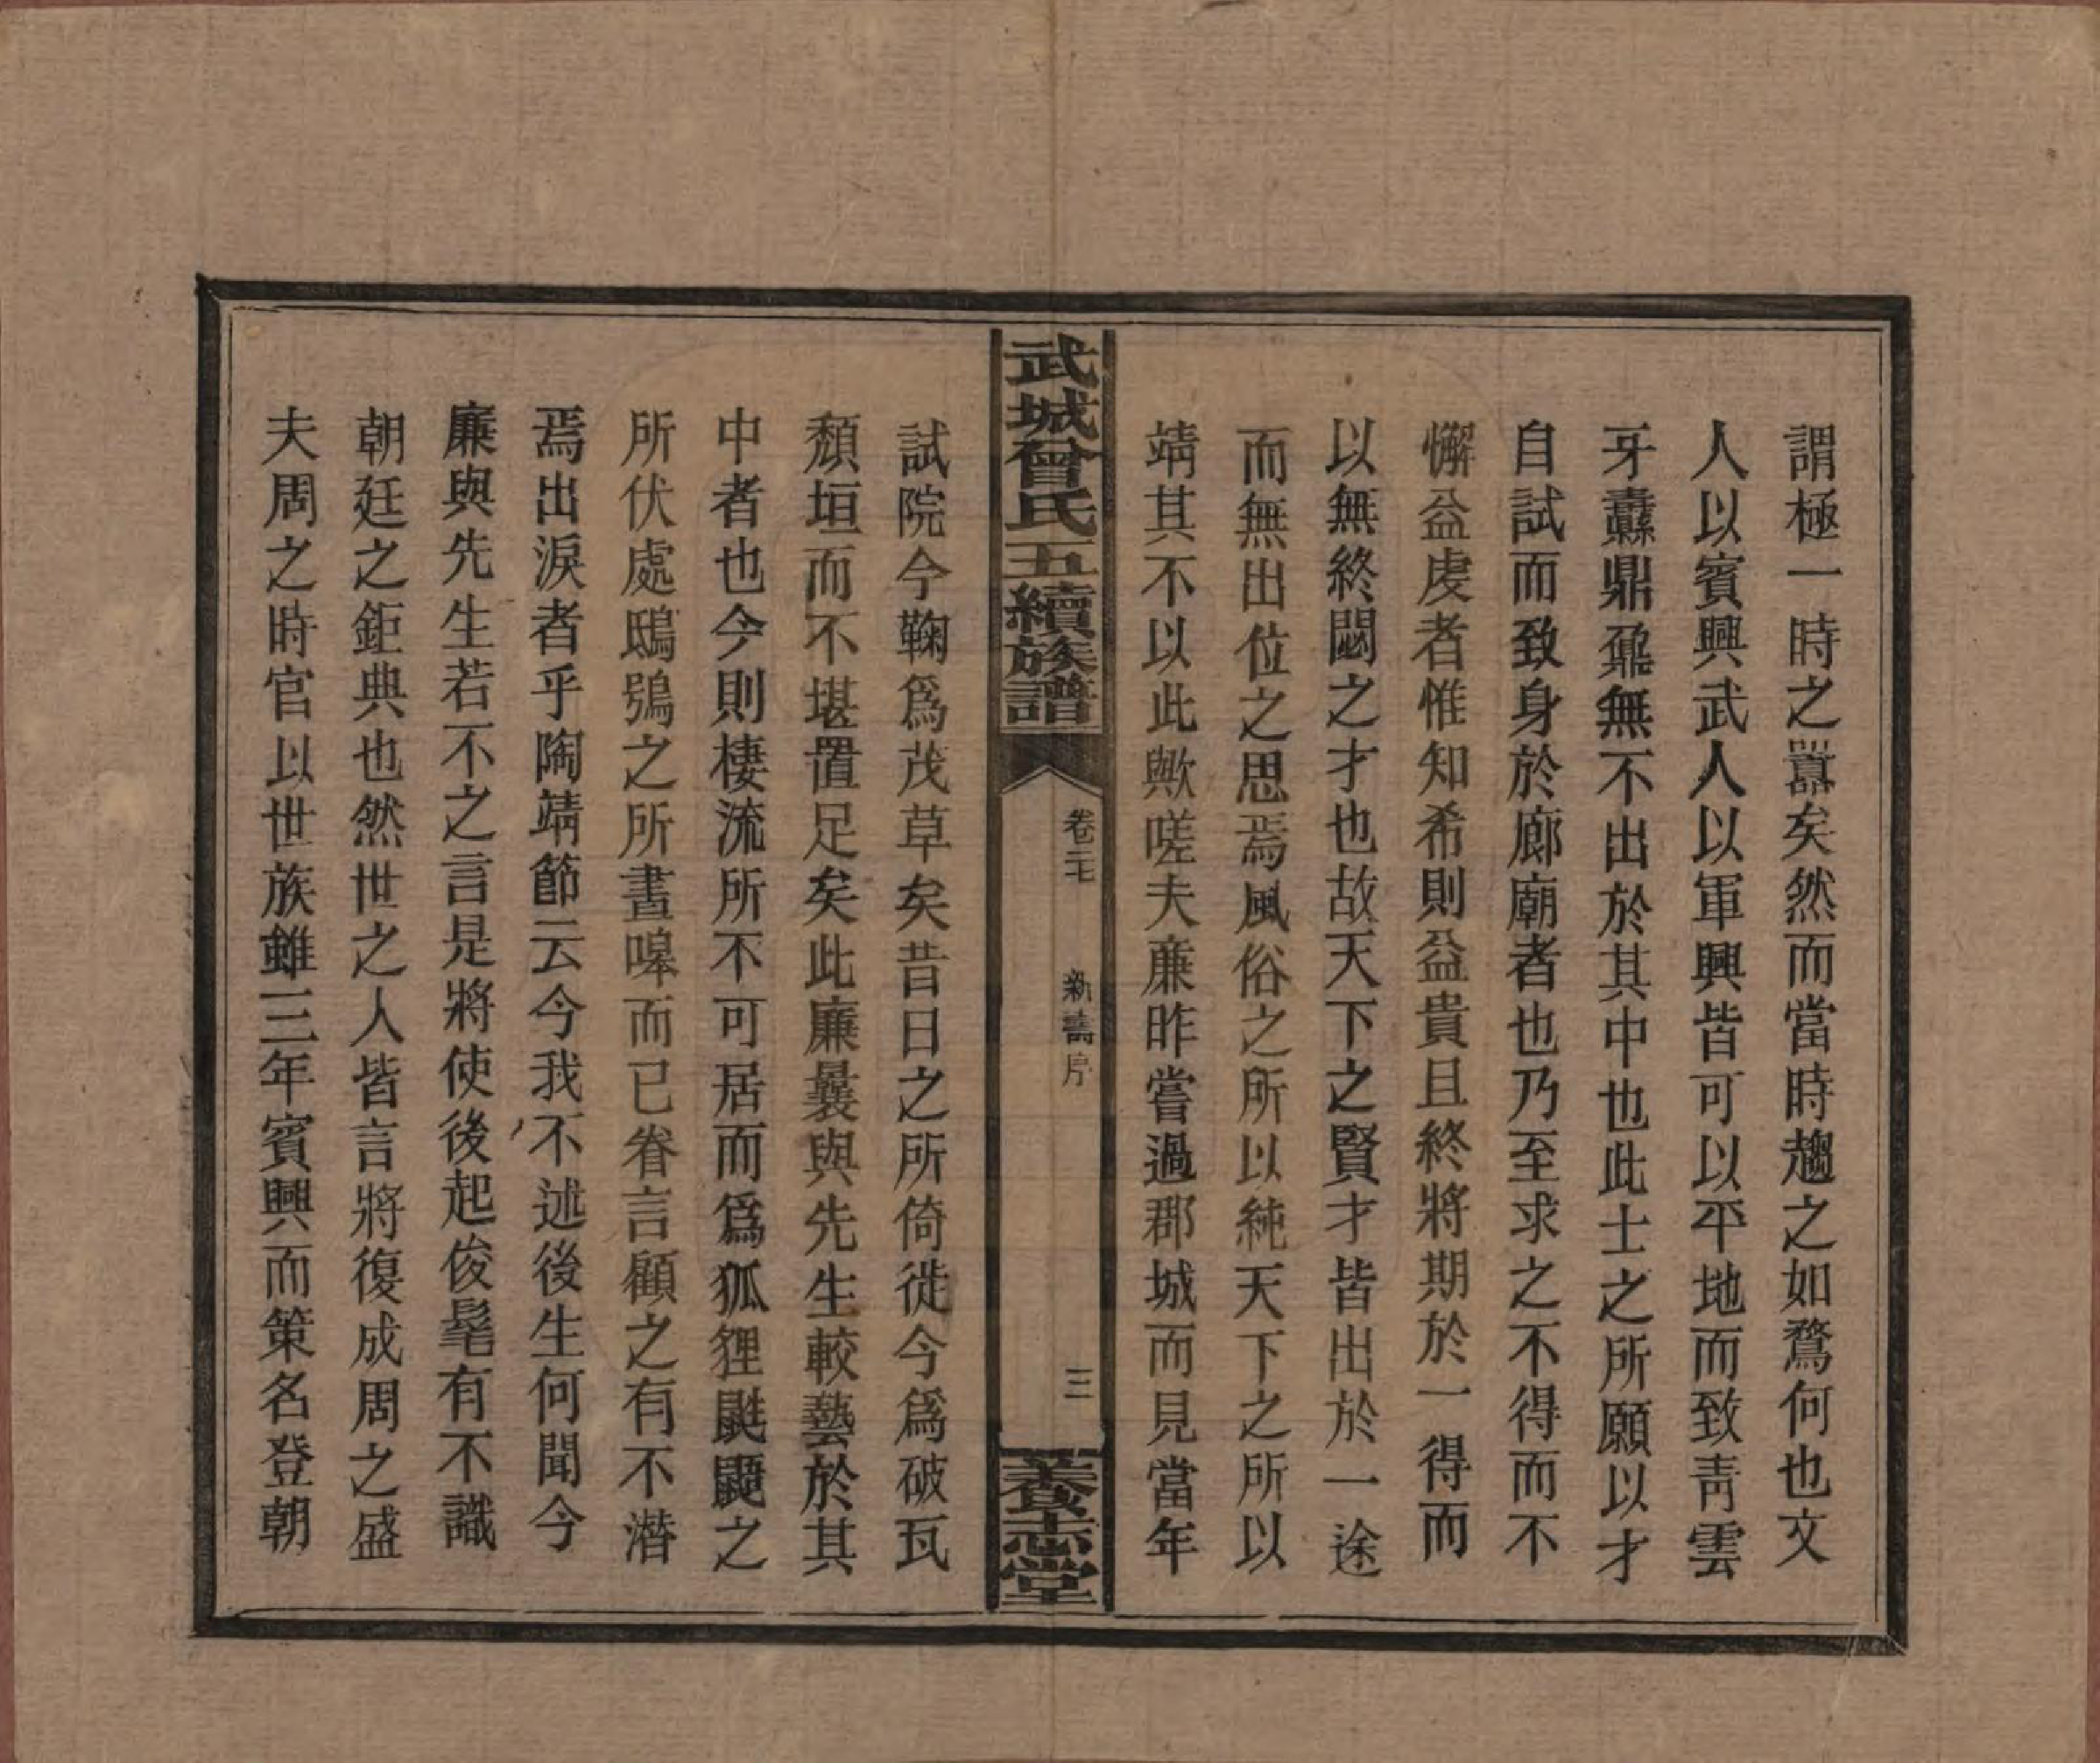 謂極一時之囂矣然而當時趨之如鶩何也文
人以賓興武人以軍興皆可以平地而致靑雲
牙纛鼎鼐無不出於其中也此士之所願以才
自試而致身於廊廟者也乃至求之不得而不
懈益虔者惟知希則益貴且終將期於一得而
以無終閟之才也故天下之賢才皆出於一途
而無出位之思焉風俗之所以純天下之所以
靖其不以此歟嗟夫廉昨嘗過郡城而見當年
武城曾氏五續族譜
卷二七
新壽序
三
養志堂
試院今鞠爲茂草矣昔日之所倚徙今爲破瓦
頽垣而不堪置足矣此廉曩與先生較藝於其
中者也今則棲流所不可居而爲狐狸鼪鼯之
所伏處鴟鴞之所晝嘷而已眷言顧之有不潸
焉出淚者乎陶靖節云今我不述後生何聞今
廉與先生若不之言是將使後起俊髦有不識
朝廷之鉅典也然世之人皆言將復成周之盛
夫周之時官以世族雖三年賓興而策名登朝